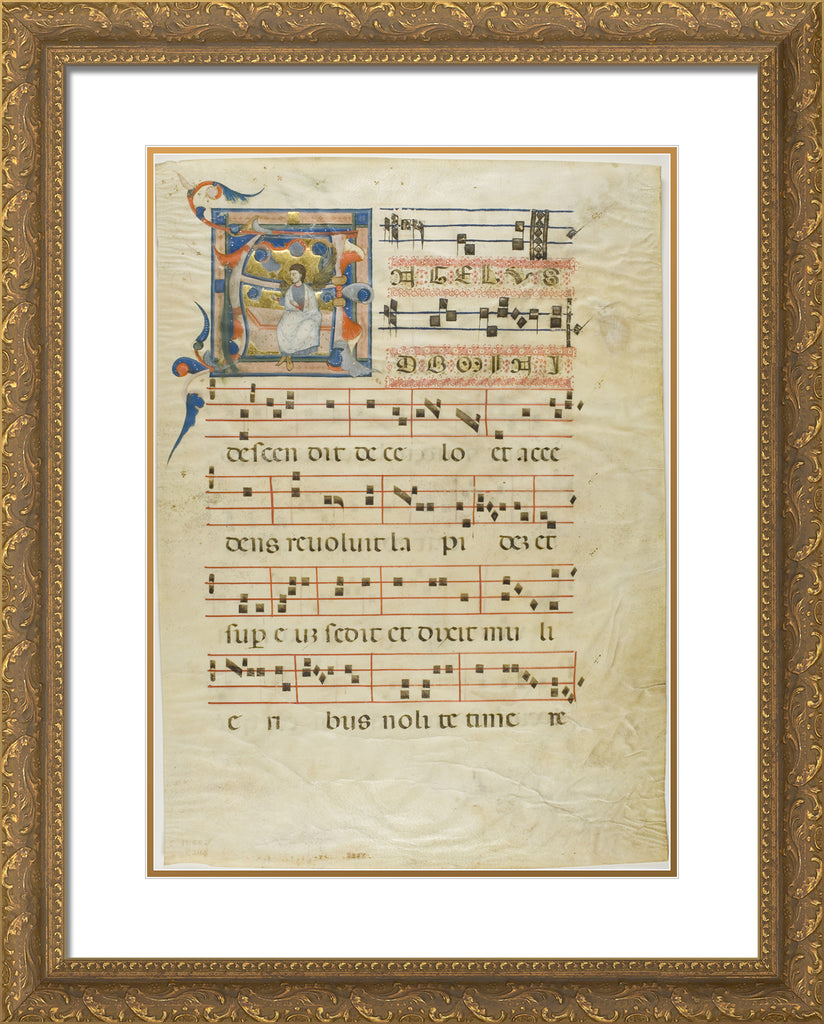 ANGELUS
DOMINI
descen dit de ce lo et acce
dens revoluit la pi dez et
sup e uz sedit et dixit mu li
e ri bus noli te time re